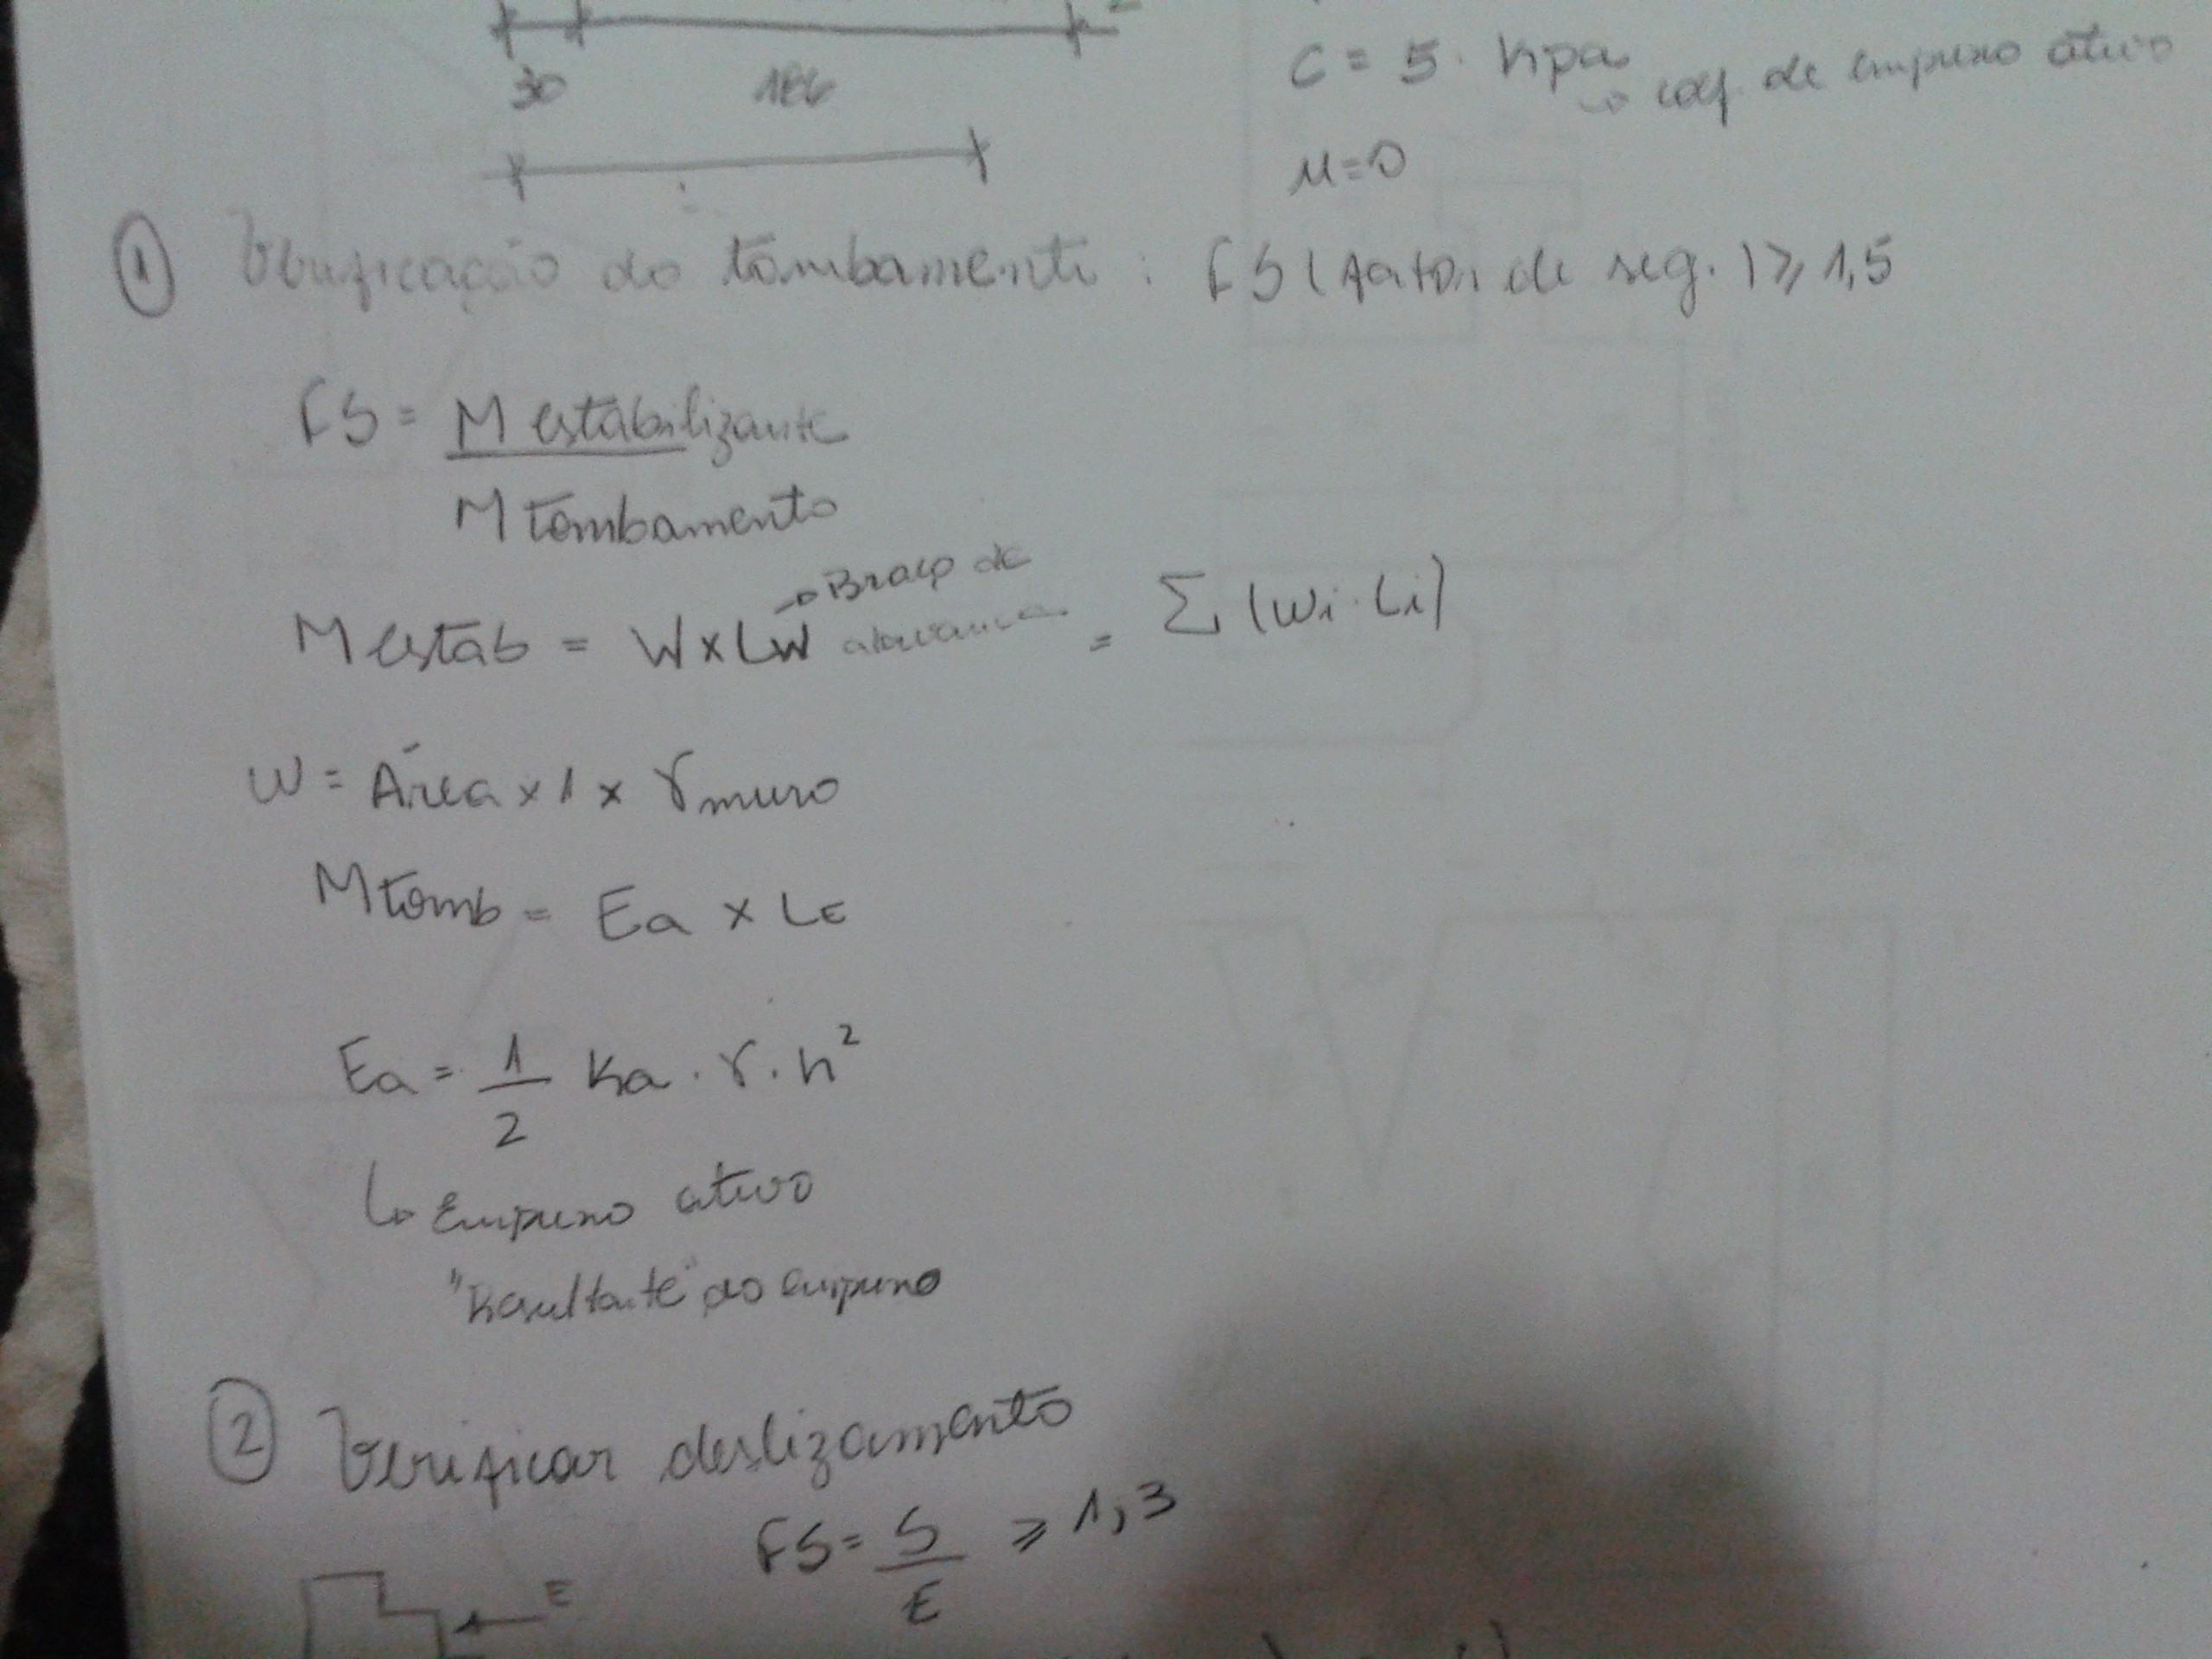 30 186
C = 5. Kpa
↳ coef. de empuxo ativo
μ=0
① Verificação do tombamento : FS (fator de seg.) ≥ 1,5
FS = M estabilizante
M tombamento
→ Braço de
M estab = W x LW alavanca = Σ (Wi . Li)
W = Área x 1 x γ muro
M tomb = Ea x LE
Ea = 1/2 Ka . γ . h²
↳ Empuxo ativo
"Resultante" do empuxo
② Verificar deslizamento
FS = S/E ≥ 1,3
E